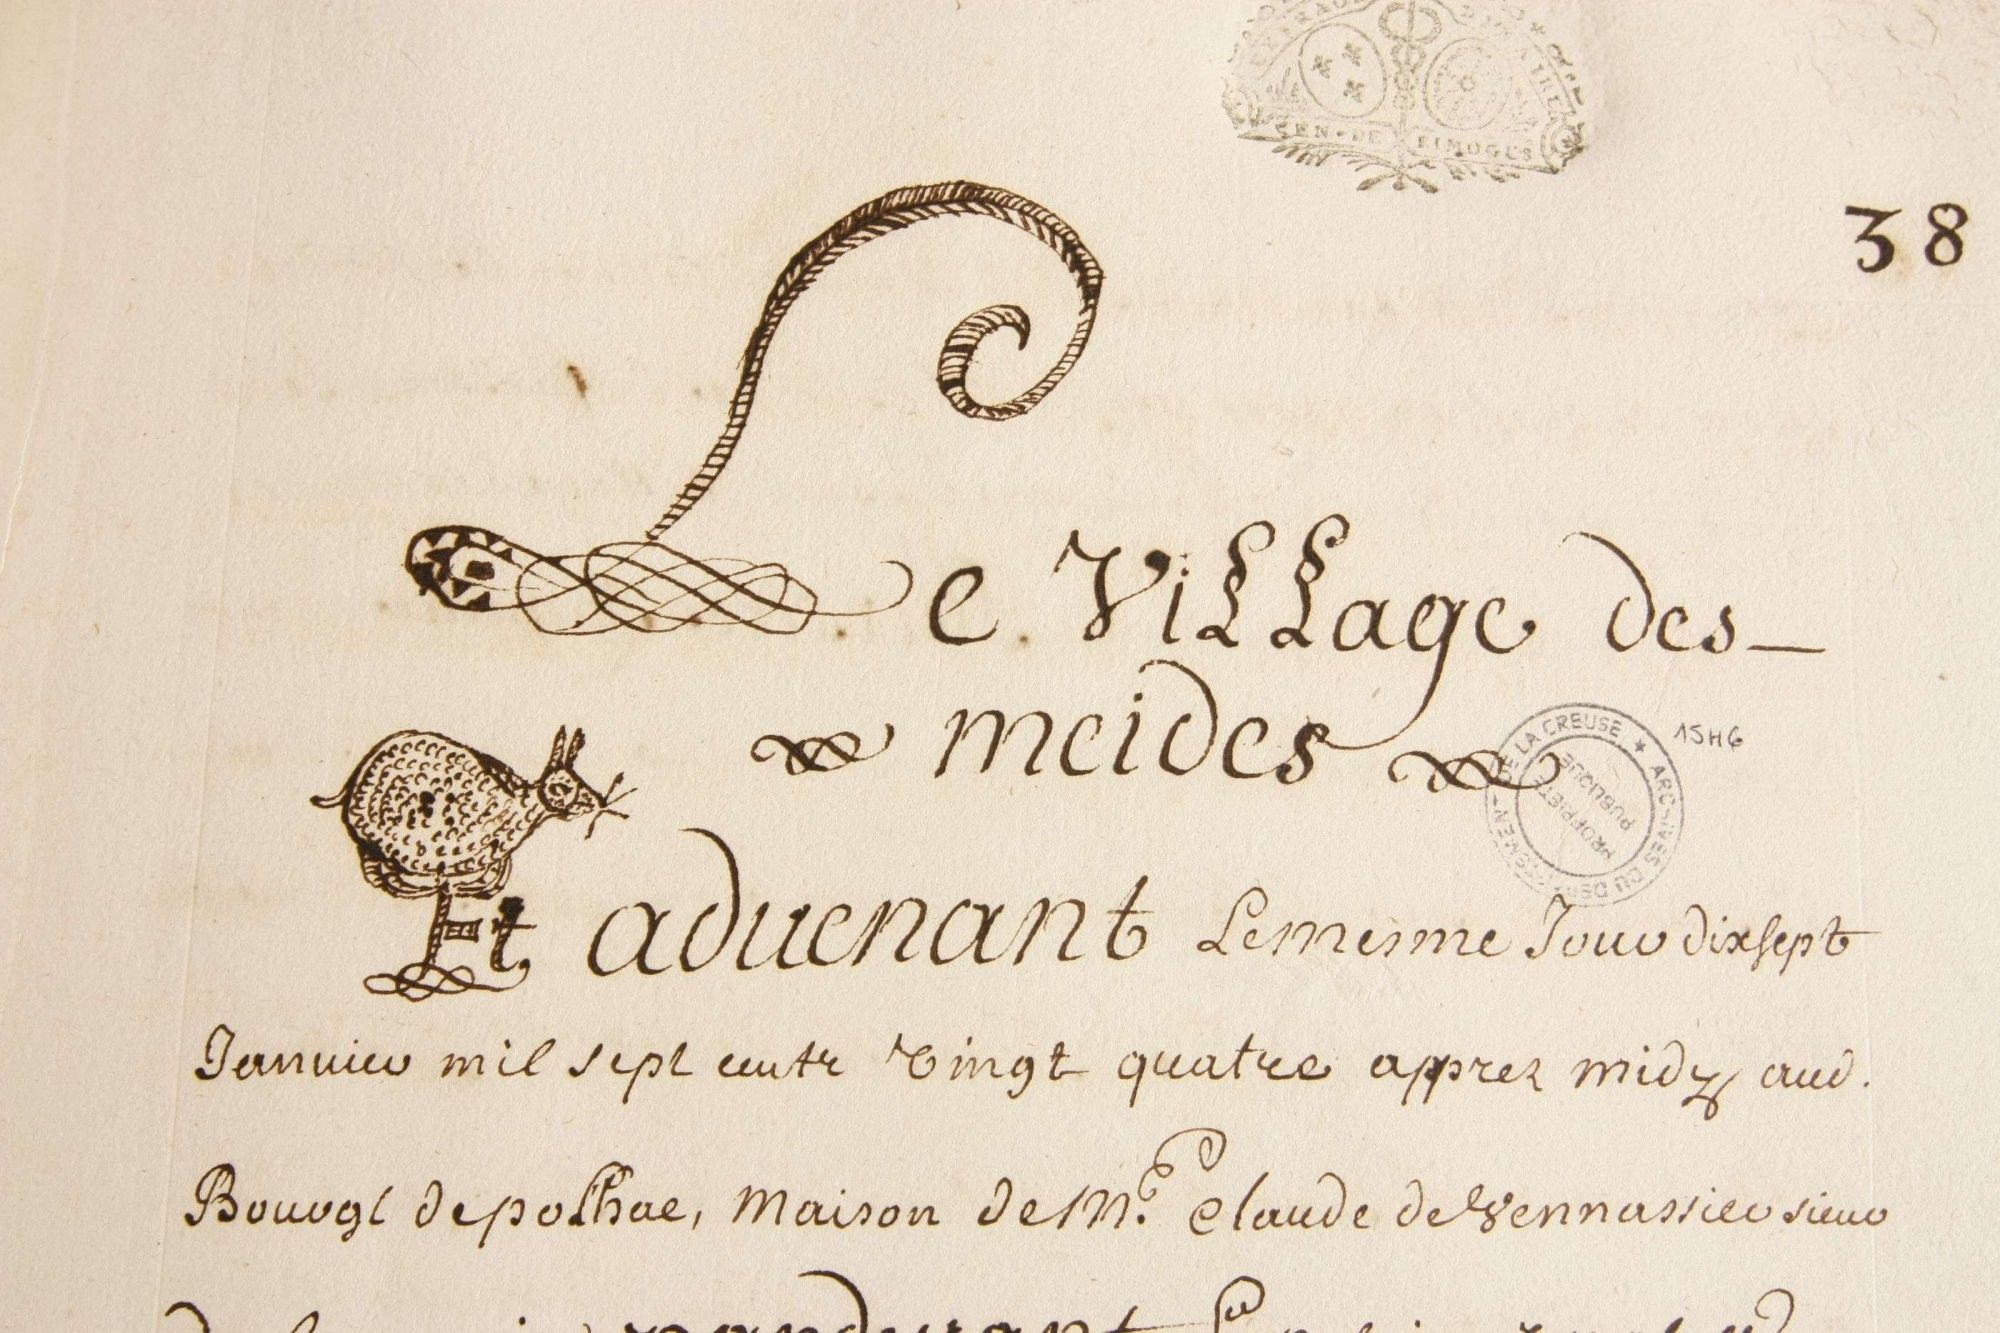 GEN · DE LIMOGES
38
Le Village des
meides
15H6
ARCHIVES DU DEPARTEMENT DE LA CREUSE
PROPRIETE PUBLIQUE
Et aduenant Le mesme Jour dix sept
Januier mil sept centz vingt quatre apprez midy aud.
Bourgt de polhac, maison de Mr. Claude de Vennassier sieur